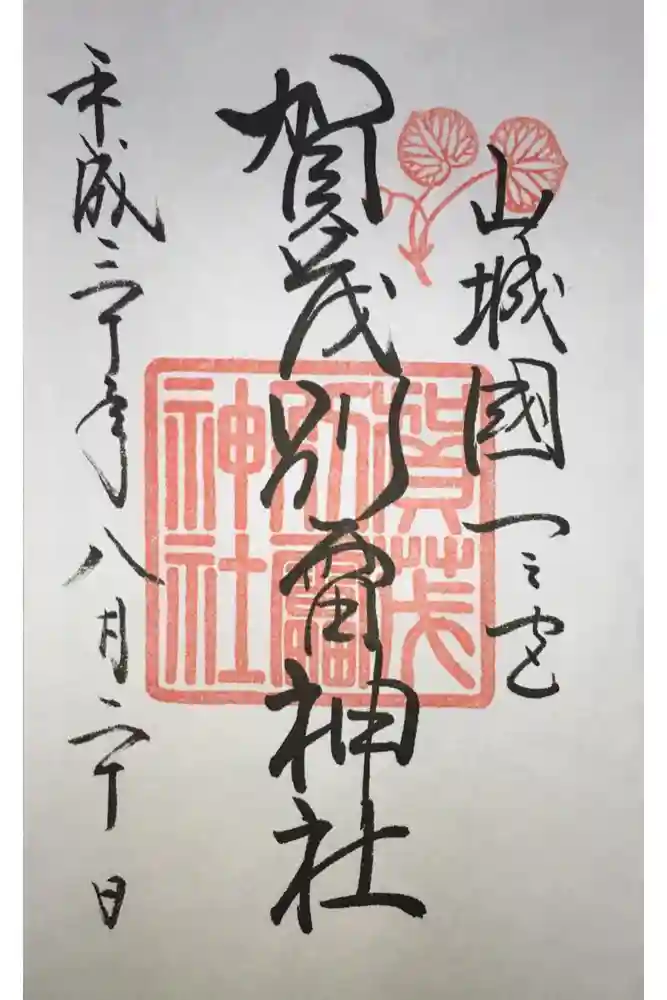 山城國一之宮
賀茂別雷神社
賀茂
別雷
神社
平成三十年八月二十日